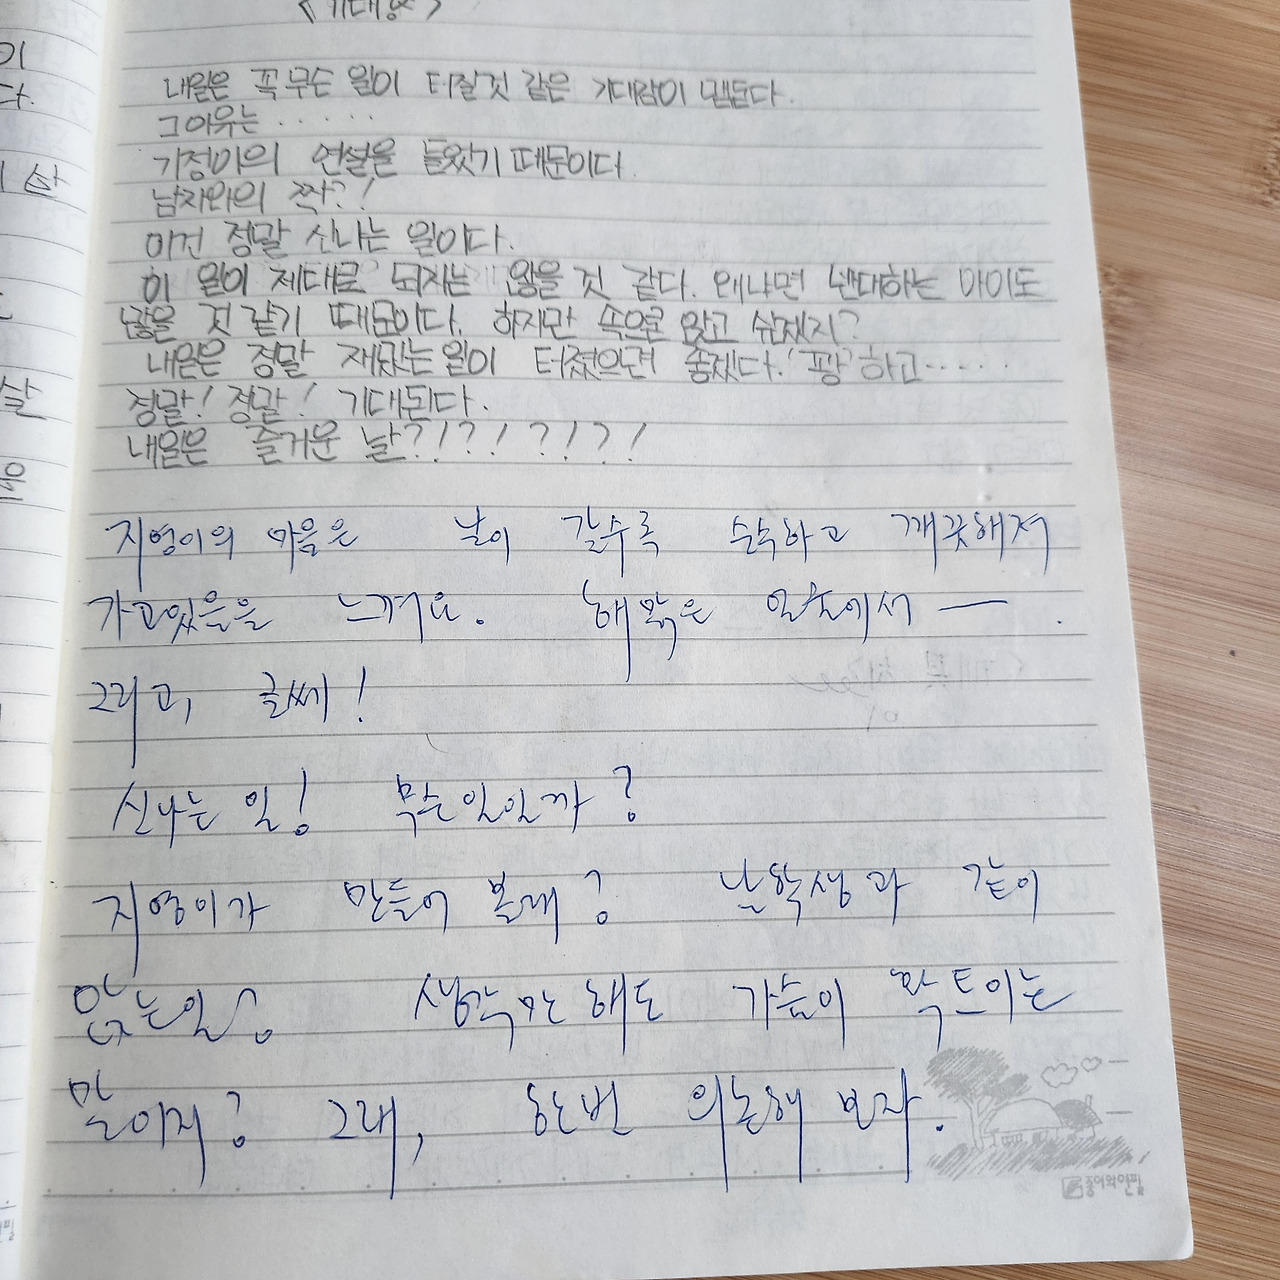 내일은 꼭 무슨 일이 터질것 같은 기대감이 맴돈다.
그 이유는 ······
기정이의 연설을 들었기 때문이다.
남자와의 짝?!
이건 정말 신나는 일이다.
이 일이 제대로 되지는 않을 것 같다. 왜냐면 반대하는 아이도
많을 것 같기 때문이다. 하지만 속으론 앉고 싶겠지?
내일은 정말 재밌는 일이 터졌으면 좋겠다. '팡' 하고·····
정말! 정말! 기대된다.
내일은 즐거운 날?!?!?!?!
지영이의 마음은 날이 갈수록 순수하고 깨끗해져
가고있음을 느껴요. 해맑은 에서 —
그리고, 글쎄!
신나는 일! 무슨일일까?
지영이가 만들어 볼래? 남학생과 같이
앉는일? 생각만 해도 가슴이 확 트이는
말이지? 그래, 한번 의논해 보자.
종이와연필
이
다.
살
을